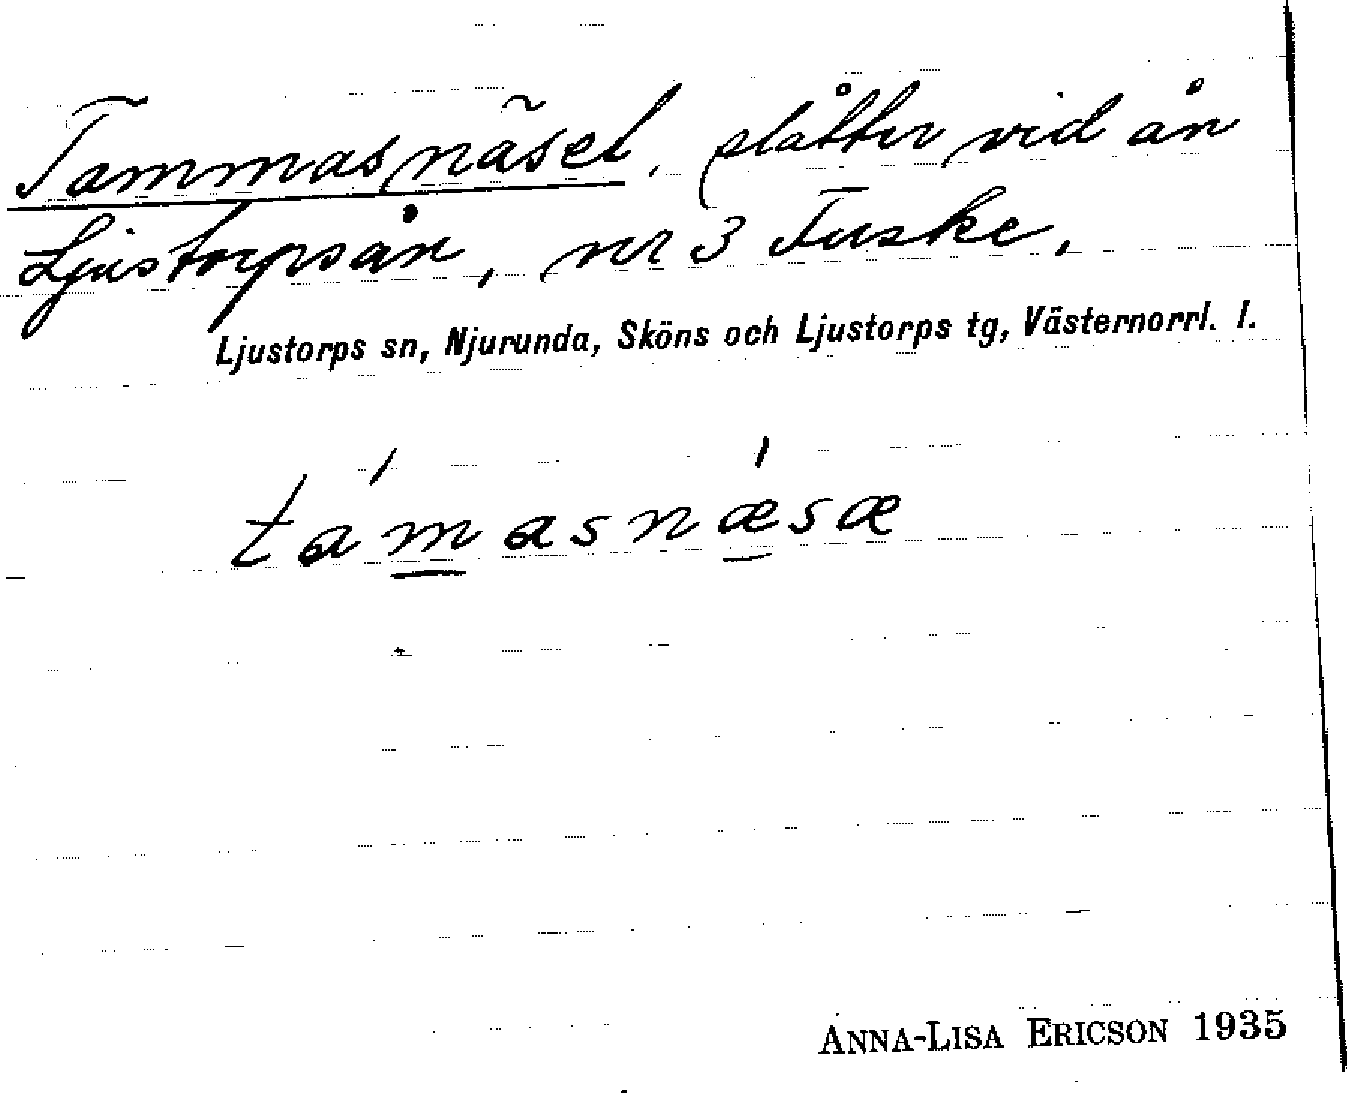 Tammasnäset, slåtter vid ån
Ljustorpsån, nr 3 Fuske.
Ljustorps sn, Njurunda, Sköns och Ljustorps tg, Västernorrl. l.
tamasnæsæ
ANNA-LISA ERICSON 1935